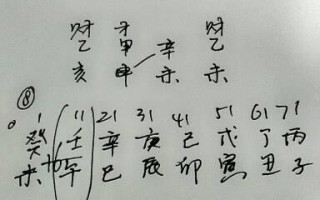 财 才 财
乙 甲 辛 乙
亥 申 未 未
⑧
1 11 21 31 41 51 61 71
癸 壬 辛 庚 己 戊 丁 丙
未 午 巳 辰 卯 寅 丑 子